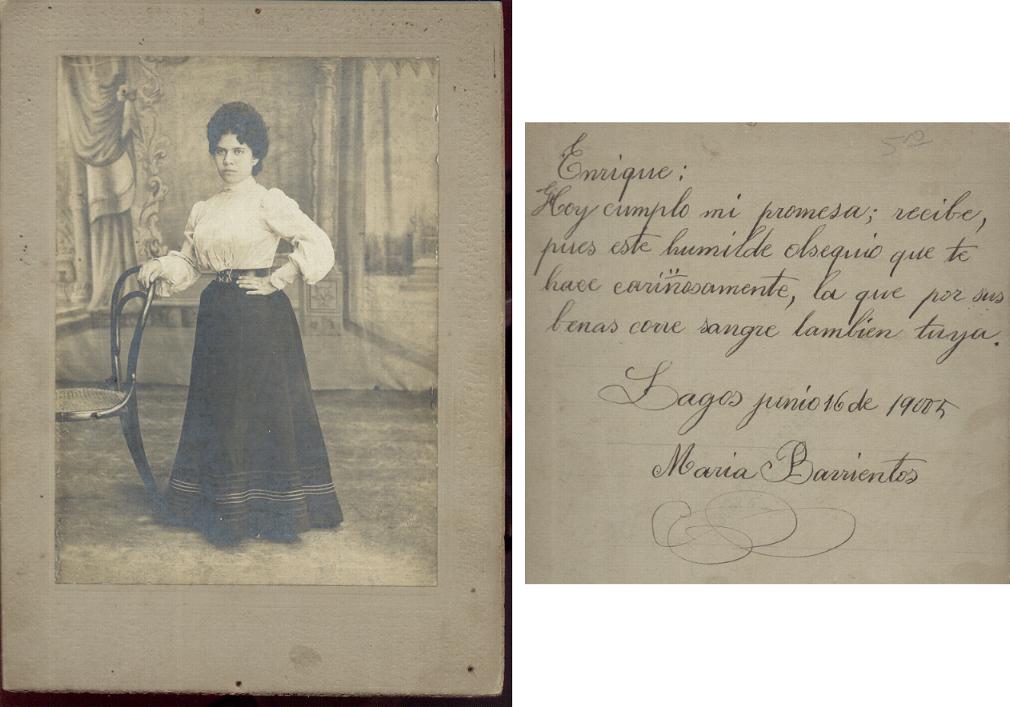 Enrique:
Hoy cumplo mi promesa; recibe,
pues este humilde obsequio que te
hace cariñosamente, la que por sus
benas corre sangre tambien tuya.
Lagos junio 16 de 1905
Maria Barrientos